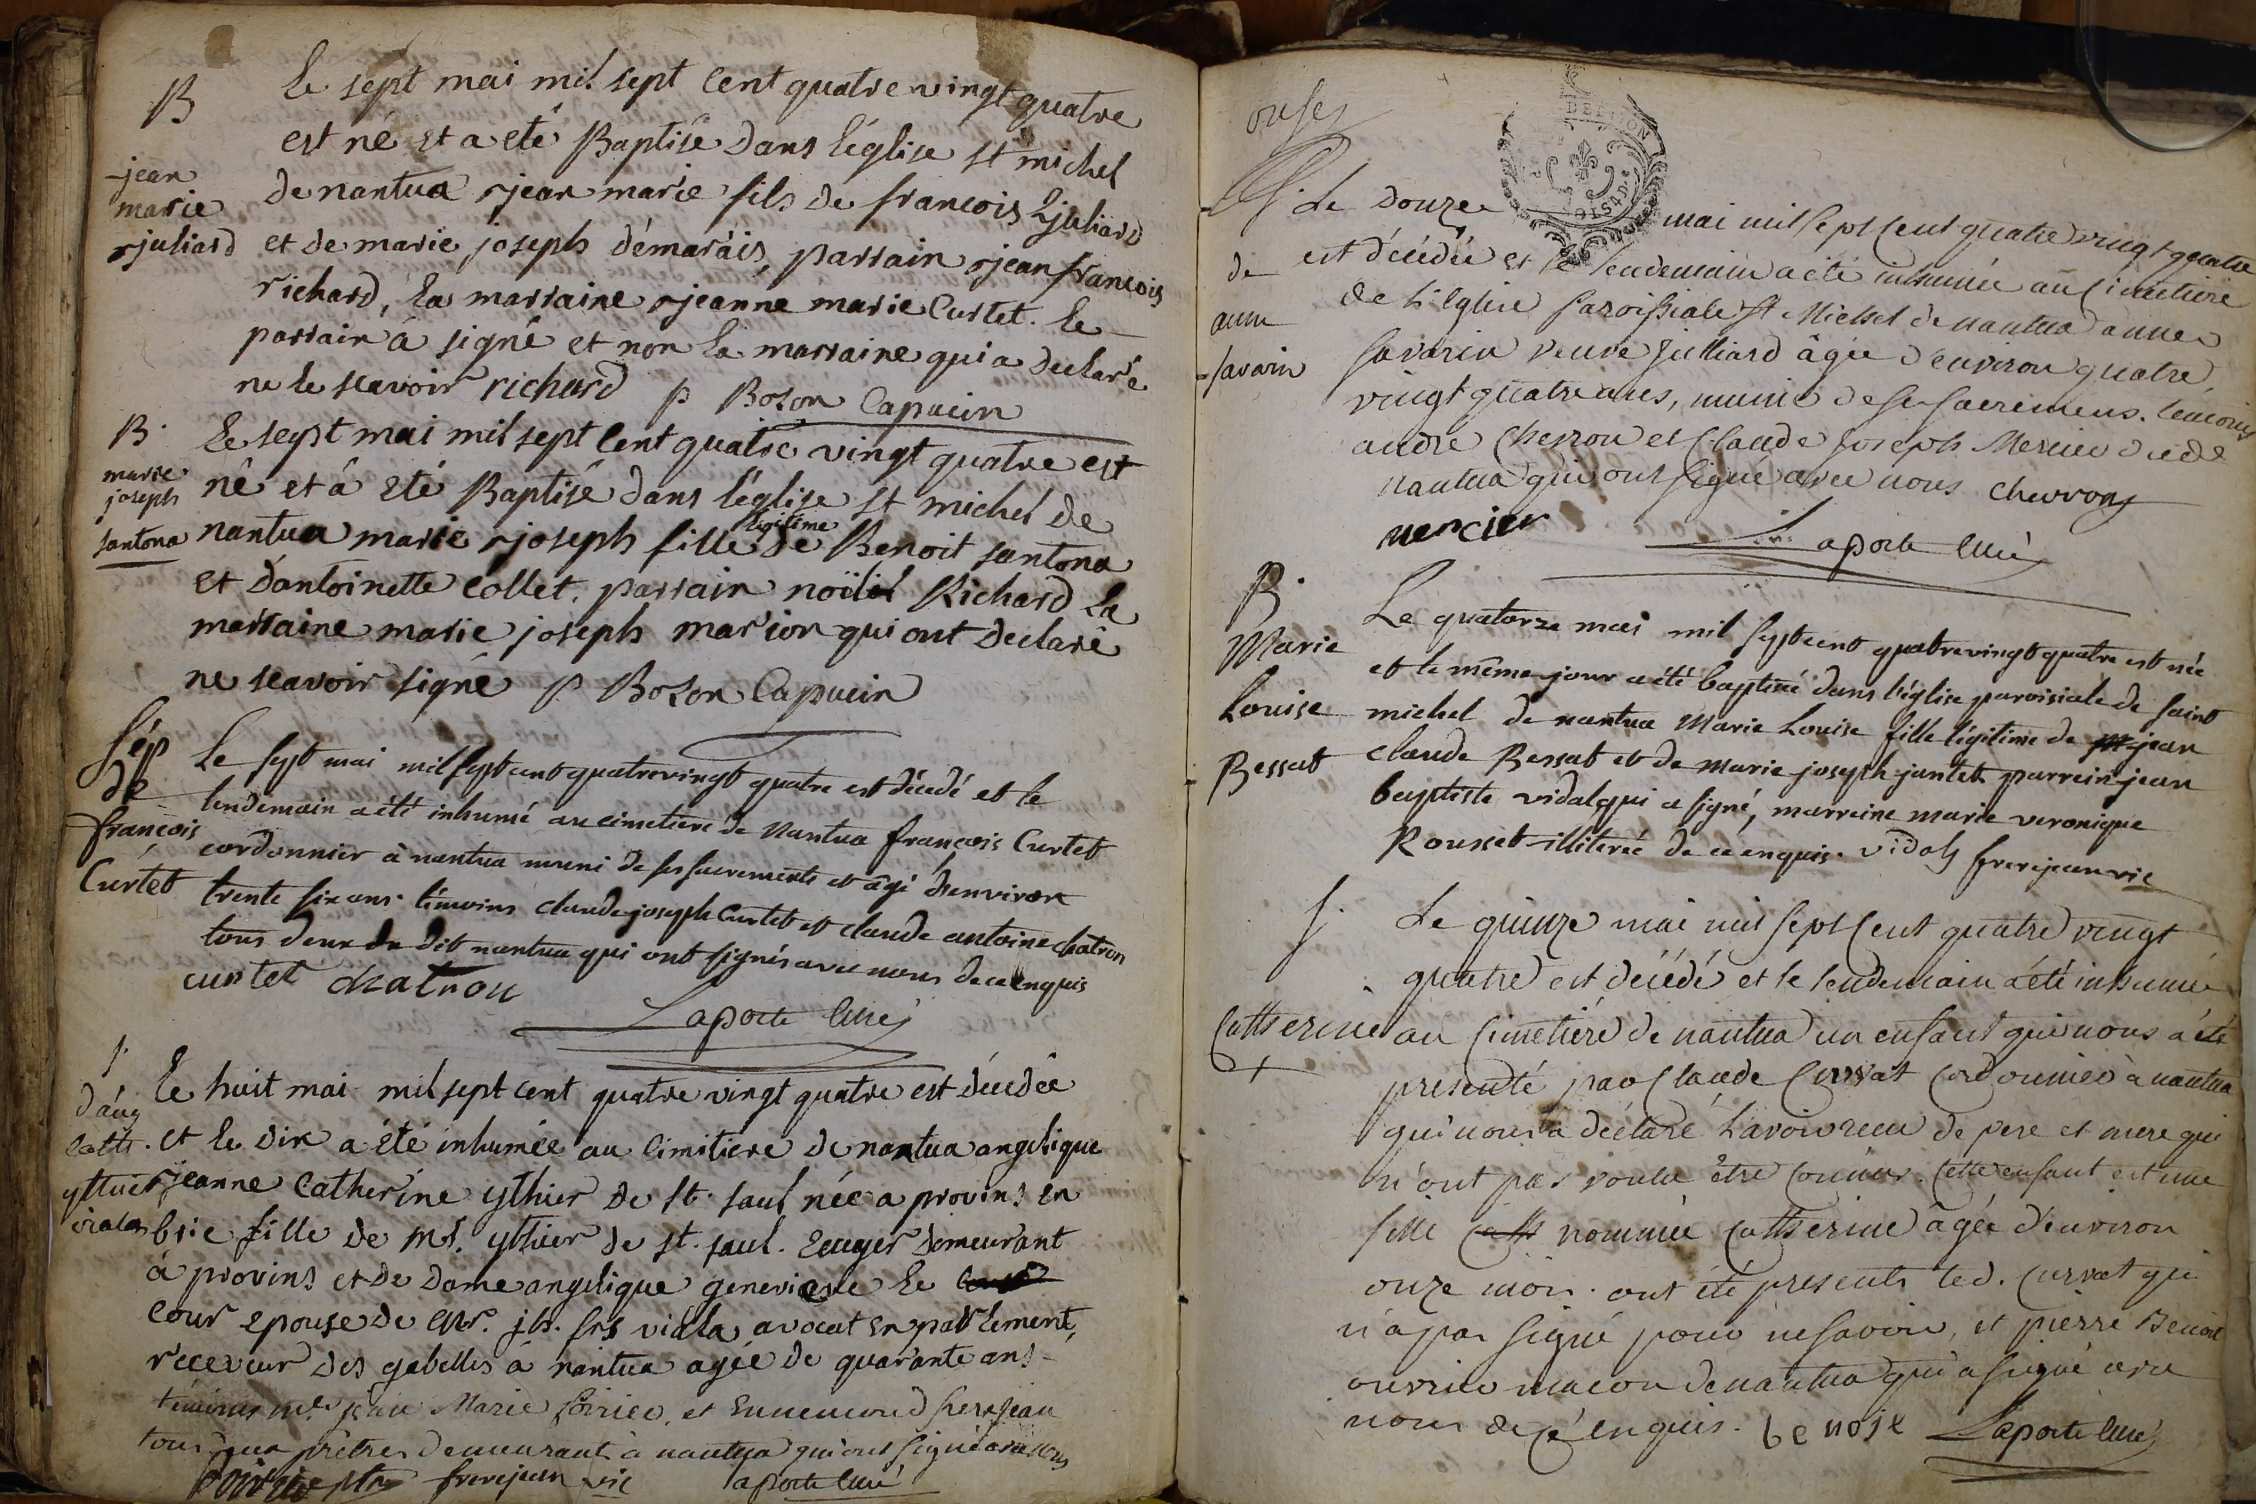 B
Le sept mai mil sept cent quatre vingt quatre
est né et a eté Baptisé dans l'église st michel
jean
marie
juliard
de nantua jean marie fils de francois juliard
et de marie joseph démarais, parrain jean francois
richard, la marraine jeanne marie Curtet. le
parrain à signé et non la marraine qui a declaré
ne le scavoir richard p Bozon Capucin
B.
marie
joseph
santona
Le sept mai mil sept cent quatre vingt quatre est
né et à eté Baptisé dans l'église st michel de
nantua marie joseph fille légitime de Benoit santona
et d'antoinette collet, parrain noël Richard la
marraine marie joseph marion qui ont declaré
ne scavoir signé p Bozon Capucin
sép
de
françois
Curtet
Le sept mai mil sept cent quatrevingt quatre est décedé et le
lendemain a été inhumé au cimetiere de Nantua françois Curtet
cordonnier à nantua muni de ses sacrements et âgé d'environ
trente six ans. témoins claude joseph Curtet et claude antoine chatron
tous deux du dit nantua qui ont signés avec nous de ce enquis
curtet chatron
Laporte curé
s.
d'ang
cathe.
ythier
viala
Le huit mai mil sept cent quatre vingt quatre est décedée
et le dix a été inhumée au cimitiere de nantua angelique
jeanne Catherine ythier de st. paul née a provins en
brie fille de mr. ythier de st. paul. Ecuyer demeurant
à provins et de dame angelique genevieve le
cour epouse de mr. jh. frs viala avocat en parlement,
receveur des gabelles à nantua agée de quarante ans
témoins mrs jean Marie Poirier, et Ennemond frerejean
tous deux prêtres demeurant à nantua qui ont signé avec nous
ptre frerejean vic Laporte curé
S.
de
anne
savarin
Le douze mai mil sept cent quatre vingt quatre
est décédée et le lendemain a été inhumée au cimetiere
de L'Eglise Paroissiale St Michel de nantua anne
savarin veuve Julliard âgée d'environ quatre
vingt quatre ans, munie de ses sacremens. témoins
andré Chevron et Claude Joseph Mercier dudt
nantua qui ont signé avec nous chevron
mercier
Laporte curé
B.
Marie
Louise
Bessat
Le quatorze mai mil sept cent quatrevingt quatre est née
et le même jour a été baptisé dans l'église paroisiale de saint
michel de nantua Marie Louise fille légitime de jean
claude Bessat et de marie joseph jantet parrein jean
baptiste vidal qui a signé, marreine marie veronique
Rousset illiterée de ce enquis. vidal frerejean vic
s.
Catherine
+
Le quinze mai mil sept cent quatre vingt
quatre est décédé et le lendemain a été inhumée
au cimetiére de nantua un enfant qui nous a été
presenté par Claude Curvat cordonnier à nantua
qui nous a déclaré L'avoir reçu de pere et mere qui
n'ont pas voulu être connus. Cette enfant est une
fille nommée Catherine âgée d'environ
onze mois. ont été presents led. Curvat qui
n'a pas signé pour ne savoir, et pierre Benoit
ouvrier macon de nantua qui a signé avec
nous de ce enquis. benoit Laporte curé